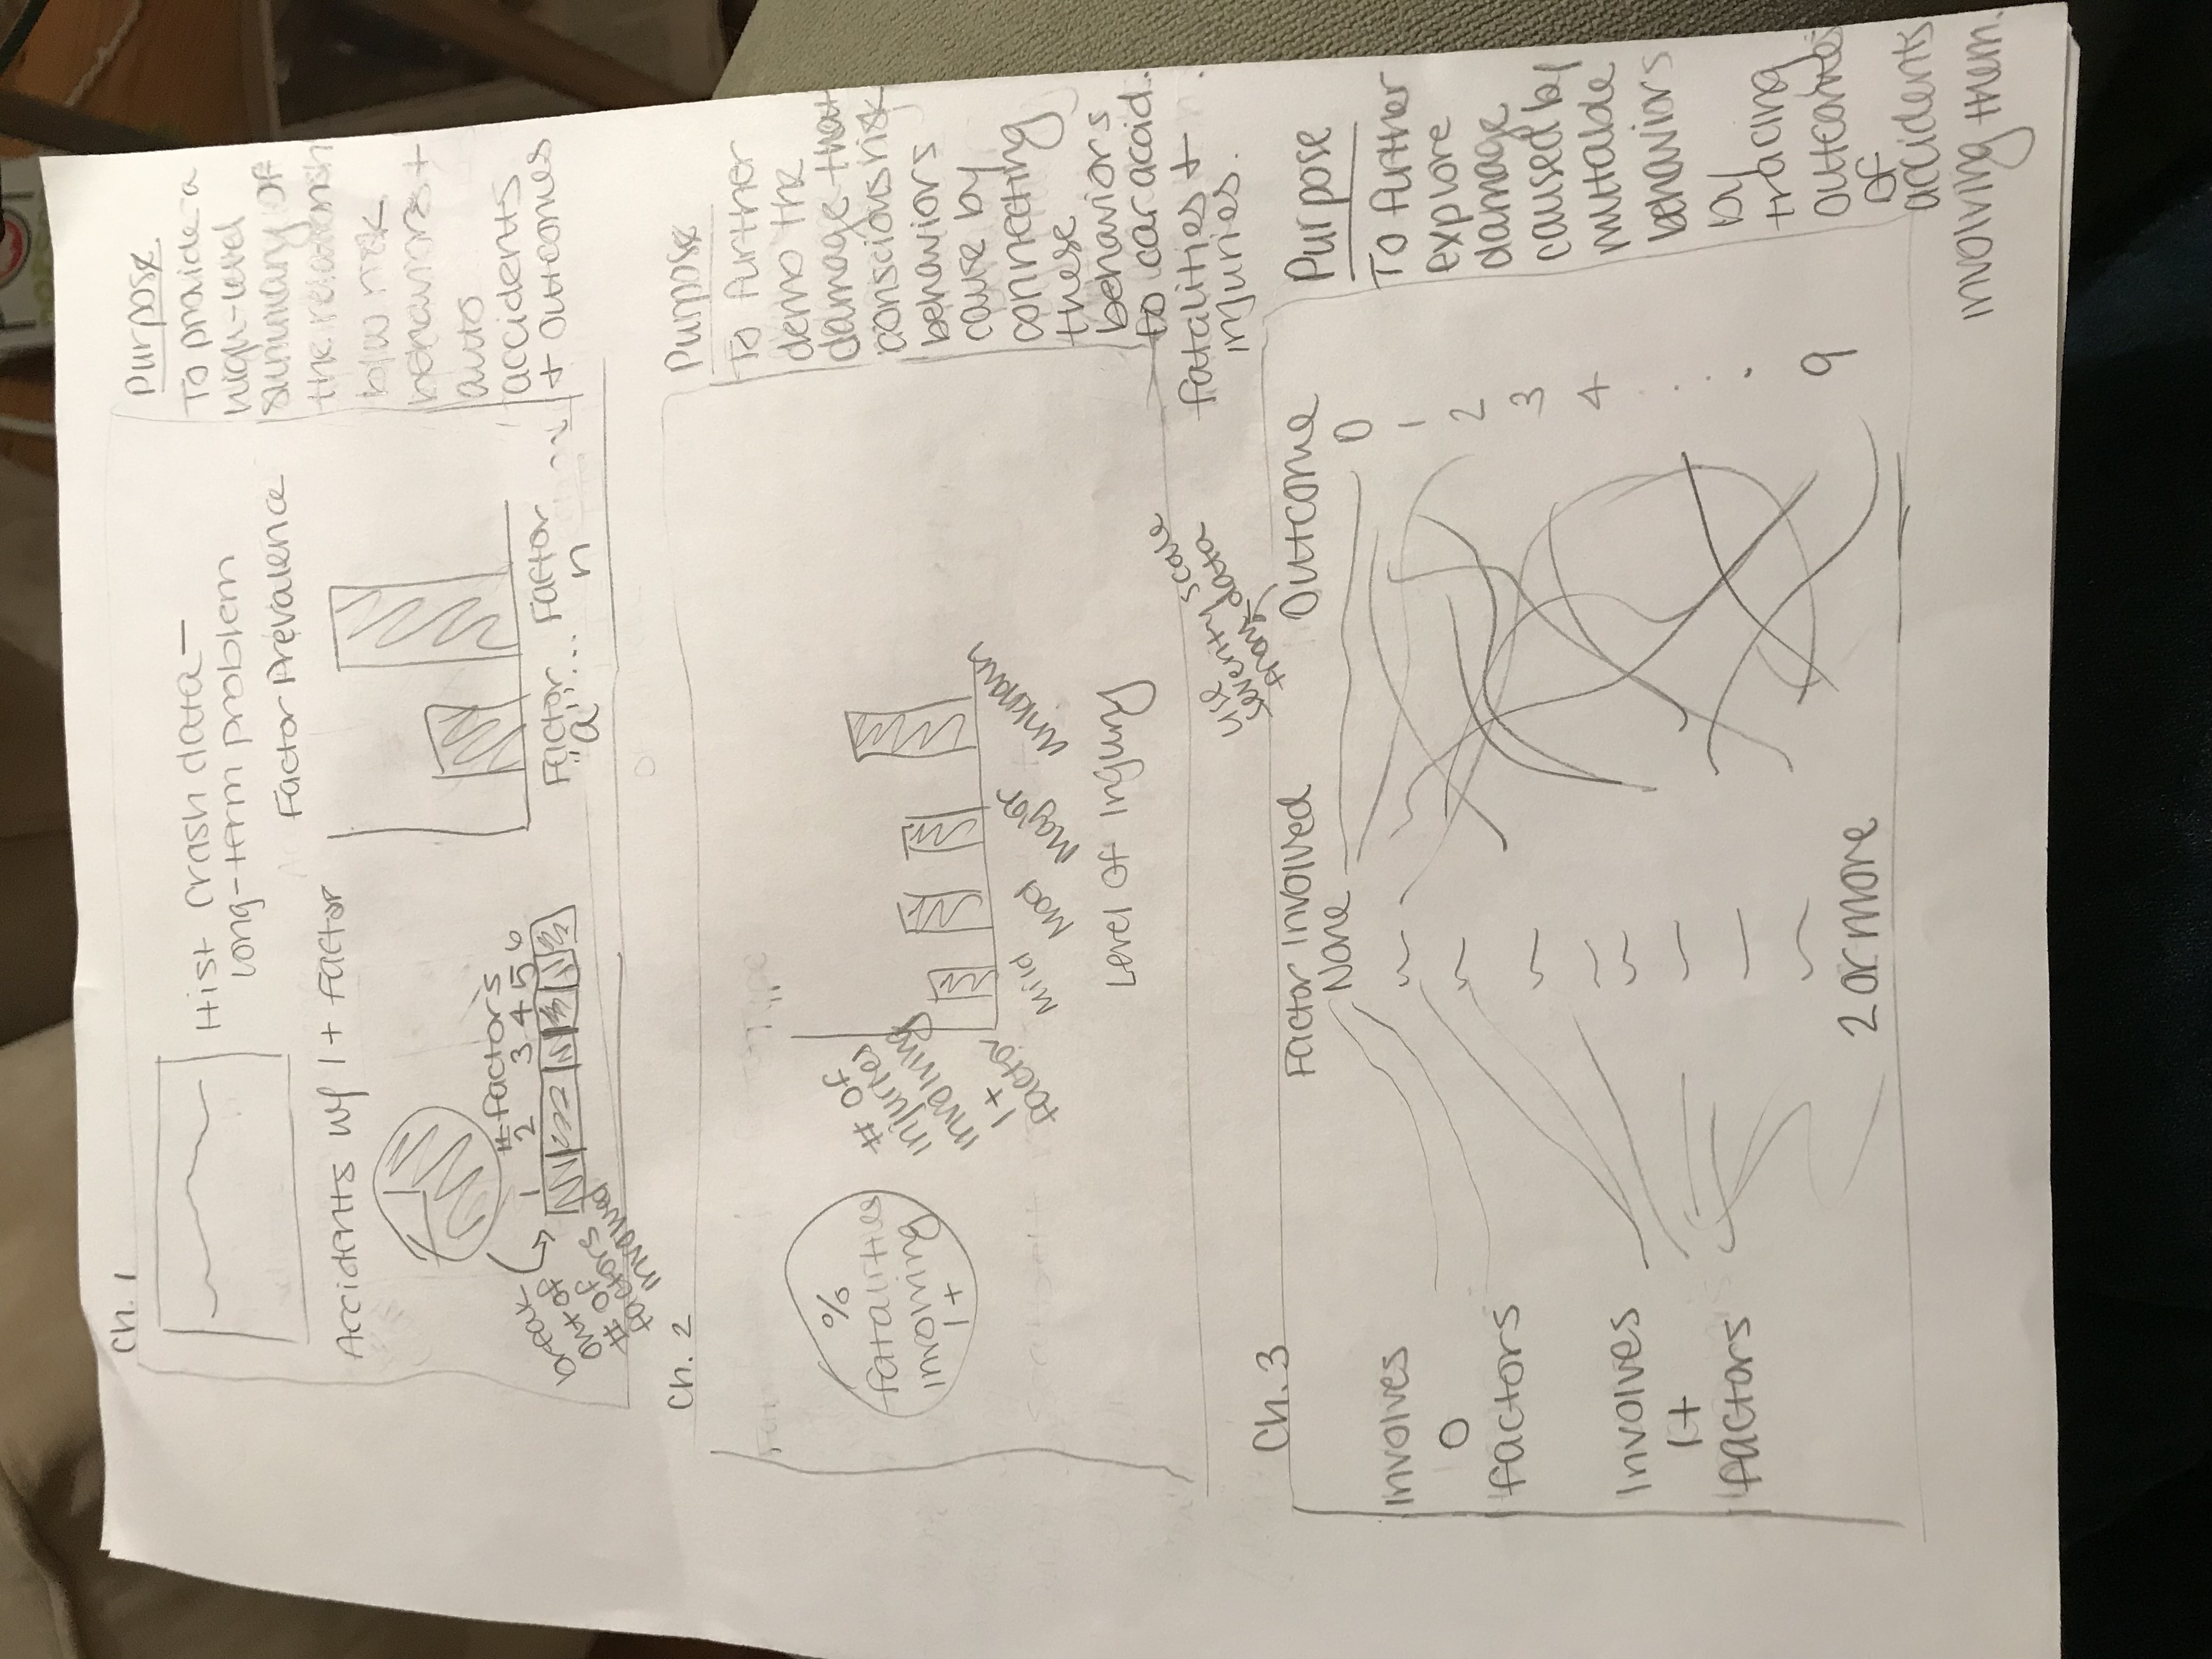 Ch. 1
Hist crash data –
long-term problem
Factor Prevalence
Accidents w/ 1+ factor
# factors
1 2 3 4 5 6
break
out of
# of
factors
involved
Factor
"a" ...
Factor
n
Purpose
To provide a
high-level
summary of
the relationsh
b/w risk
behaviors +
auto
accidents
+ outcomes
Ch. 2
%
fatalities
involving
1+
# of
injuries
involving
1+
factor
Mild
Mod
Major
Unknown
Level of Injury
Purpose
To further
demo the
damage that
conscious risk
behaviors
cause by
connecting
these
behaviors
to car accid.
fatalities +
injuries.
Ch. 3
use
severity scale
from data
Factor Involved
None
2 or more
Outcome
0
1
2
3
4
.
.
.
9
Involves
0
factors
Involves
1+
factors
Purpose
To further
explore
damage
caused by
mutable
behaviors
by
tracing
outcomes
of
accidents
involving them.